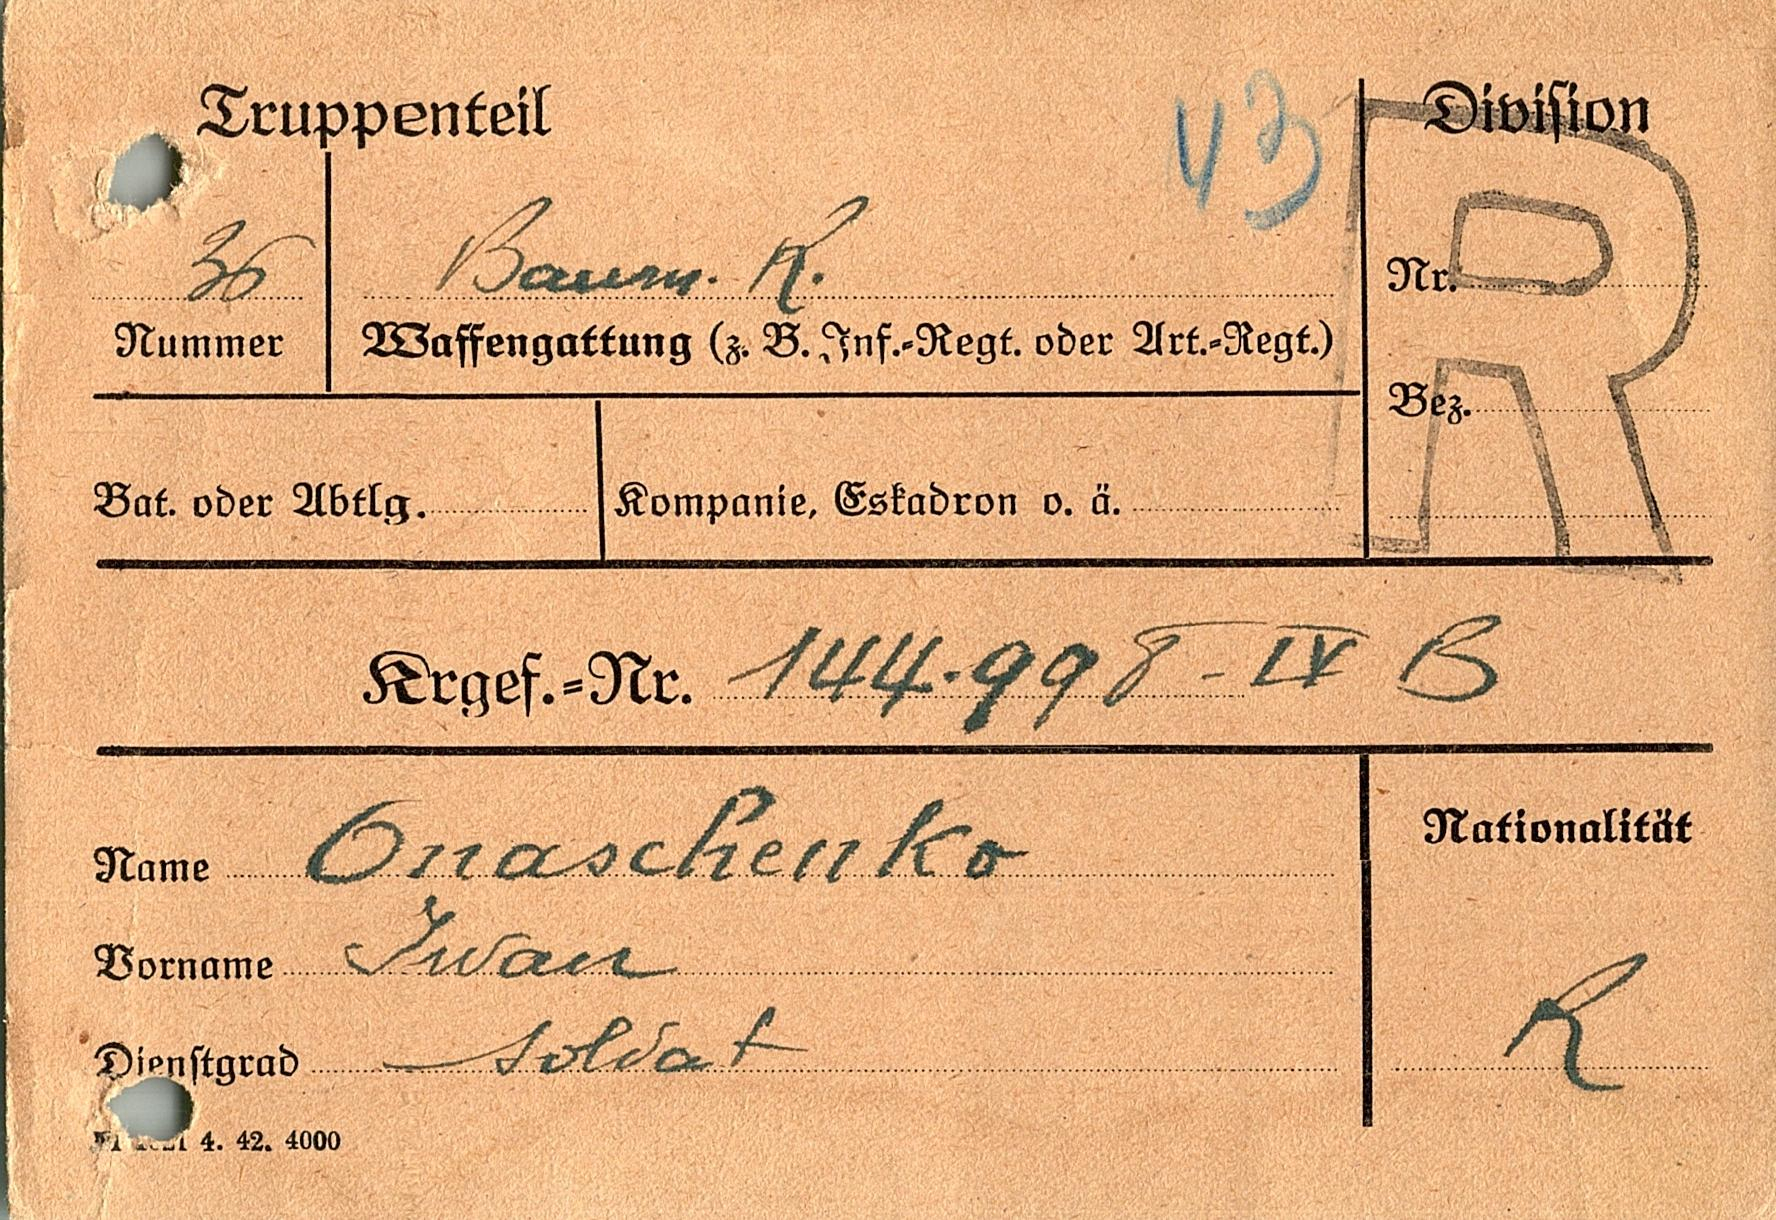 Truppenteil
43
Division
R
36
Baum. R.
Nr.
Nummer
Waffengattung (z. B. Inf.-Regt. oder Art.-Regt.)
Bez.
Bat. oder Abtlg.
Kompanie, Eskadron o. ä.
Krgef.-Nr. 144.998 - IV B
Name Onaschenko
Nationalität
Vorname Iwan
R
Dienstgrad soldat
4. 42. 4000